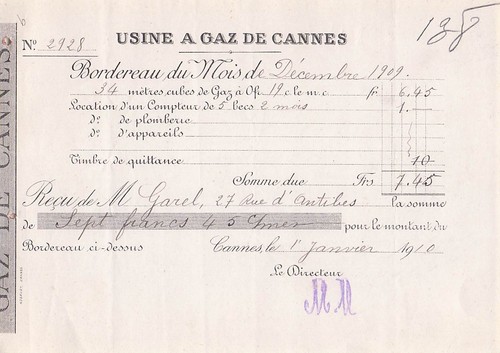 138
Nº 2928
USINE A GAZ DE CANNES
Bordereau du Mois de Décembre 1909.
34 mètres cubes de Gaz à 0f. 19 c le m.c fr 6.45
Location d'un Compteur de 5 becs 2 mois 1.—
dº de plomberie
dº d'appareils
Timbre de quittance 10
Somme due Frs 7.45
Reçu de M Garel, 27 Rue d'Antibes la somme
de Sept francs 45 c/mes pour le montant du
Bordereau ci-dessus Cannes, le 1r Janvier 1910
Le Directeur
M.M
GAZ DE CANNES.